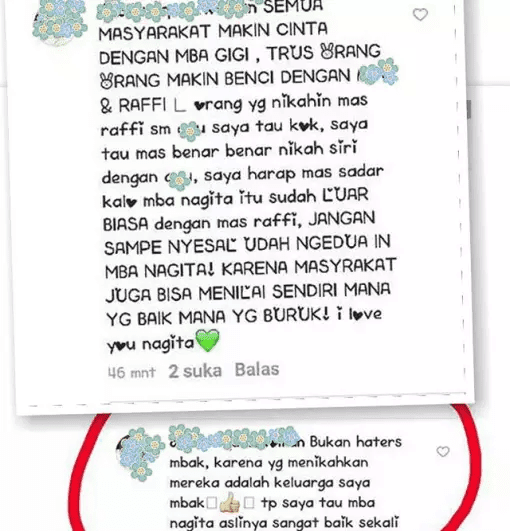 SEMUA
MASYARAKAT MAKIN CINTA
DENGAN MBA GIGI , TRUS ORANG
ORANG MAKIN BENCI DENGAN
& RAFFI L orang yg nikahin mas
raffi sm saya tau kok, saya
tau mas benar benar nikah siri
dengan , saya harap mas sadar
kalo mba nagita itu sudah LUAR
BIASA dengan mas raffi, JANGAN
SAMPE NYESAL UDAH NGEDUA IN
MBA NAGITA! KARENA MASYRAKAT
JUGA BISA MENILAI SENDIRI MANA
YG BAIK MANA YG BURUK! i love
you nagita💚
46 mnt 2 suka Balas
Bukan haters
mbak, karena yg menikahkan
mereka adalah keluarga saya
mbak👍 tp saya tau mba
nagita aslinya sangat baik sekali